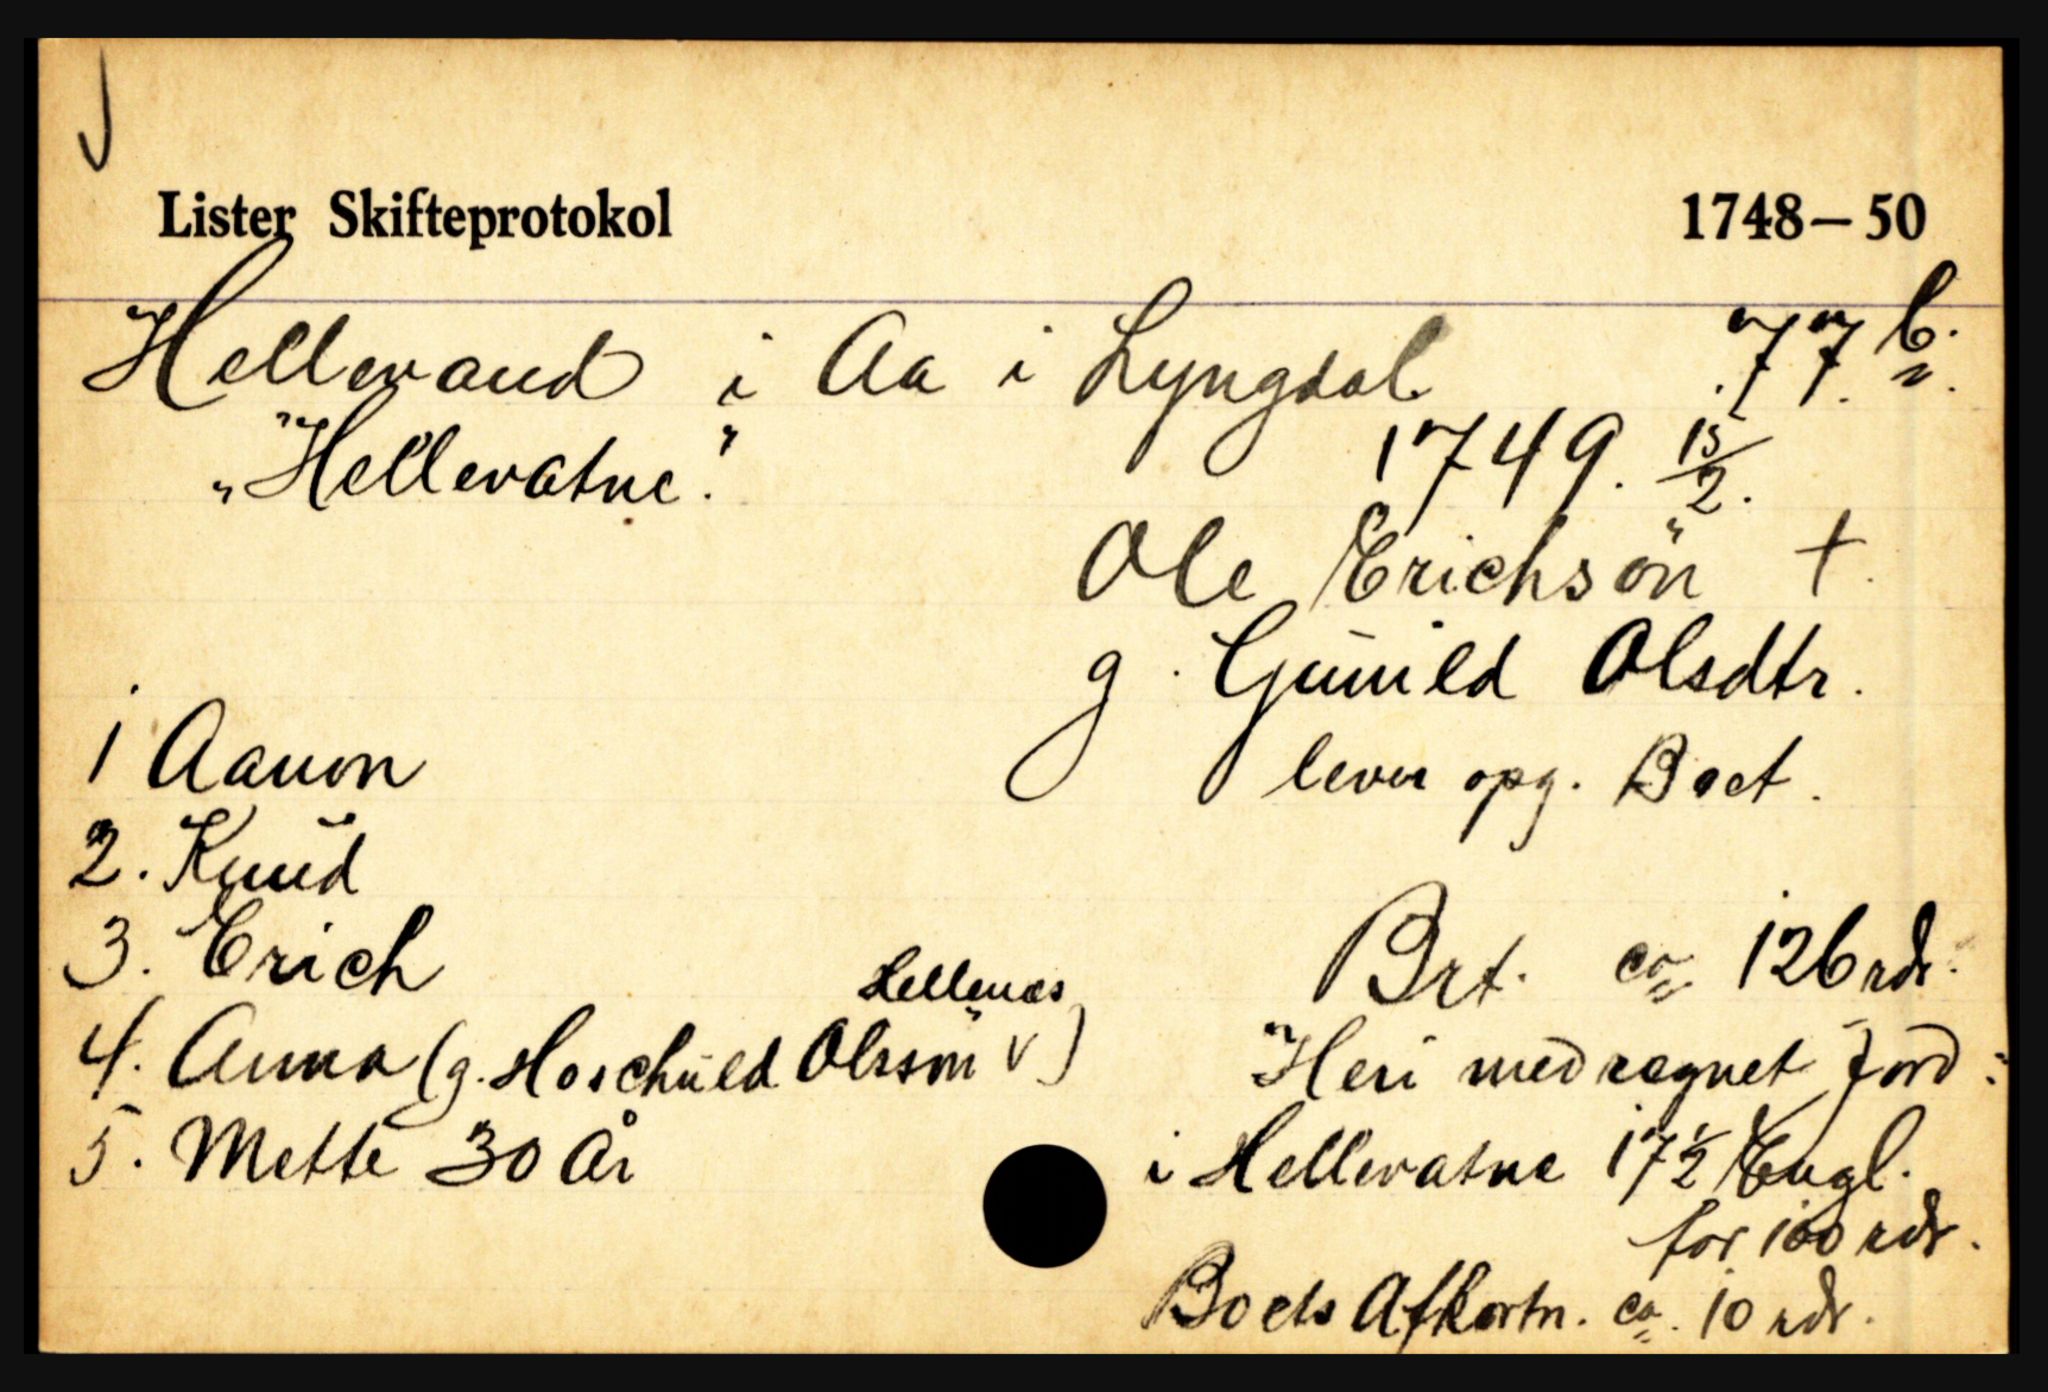 Lister Skifteprotokol 1748-50
Hellevand i Aa i Lyngdal. 77 b.
"Hellevatne." 1749. 15/2.
Ole Erichsön †.
g. Gunild Olsdtr.
lever opg. Boet.
1 Aanon
2. Knud
3. Erich
Brt. ca. 126 rdr.
Hellenæs
4. Anna (g. Hoschuld Olssön v)
Heri medregnet Jord:
5. Mette 30 År
i Hellevatne 17½ Engl.
for 100 rdr.
Boets Afkortn. ca. 10 rdr.